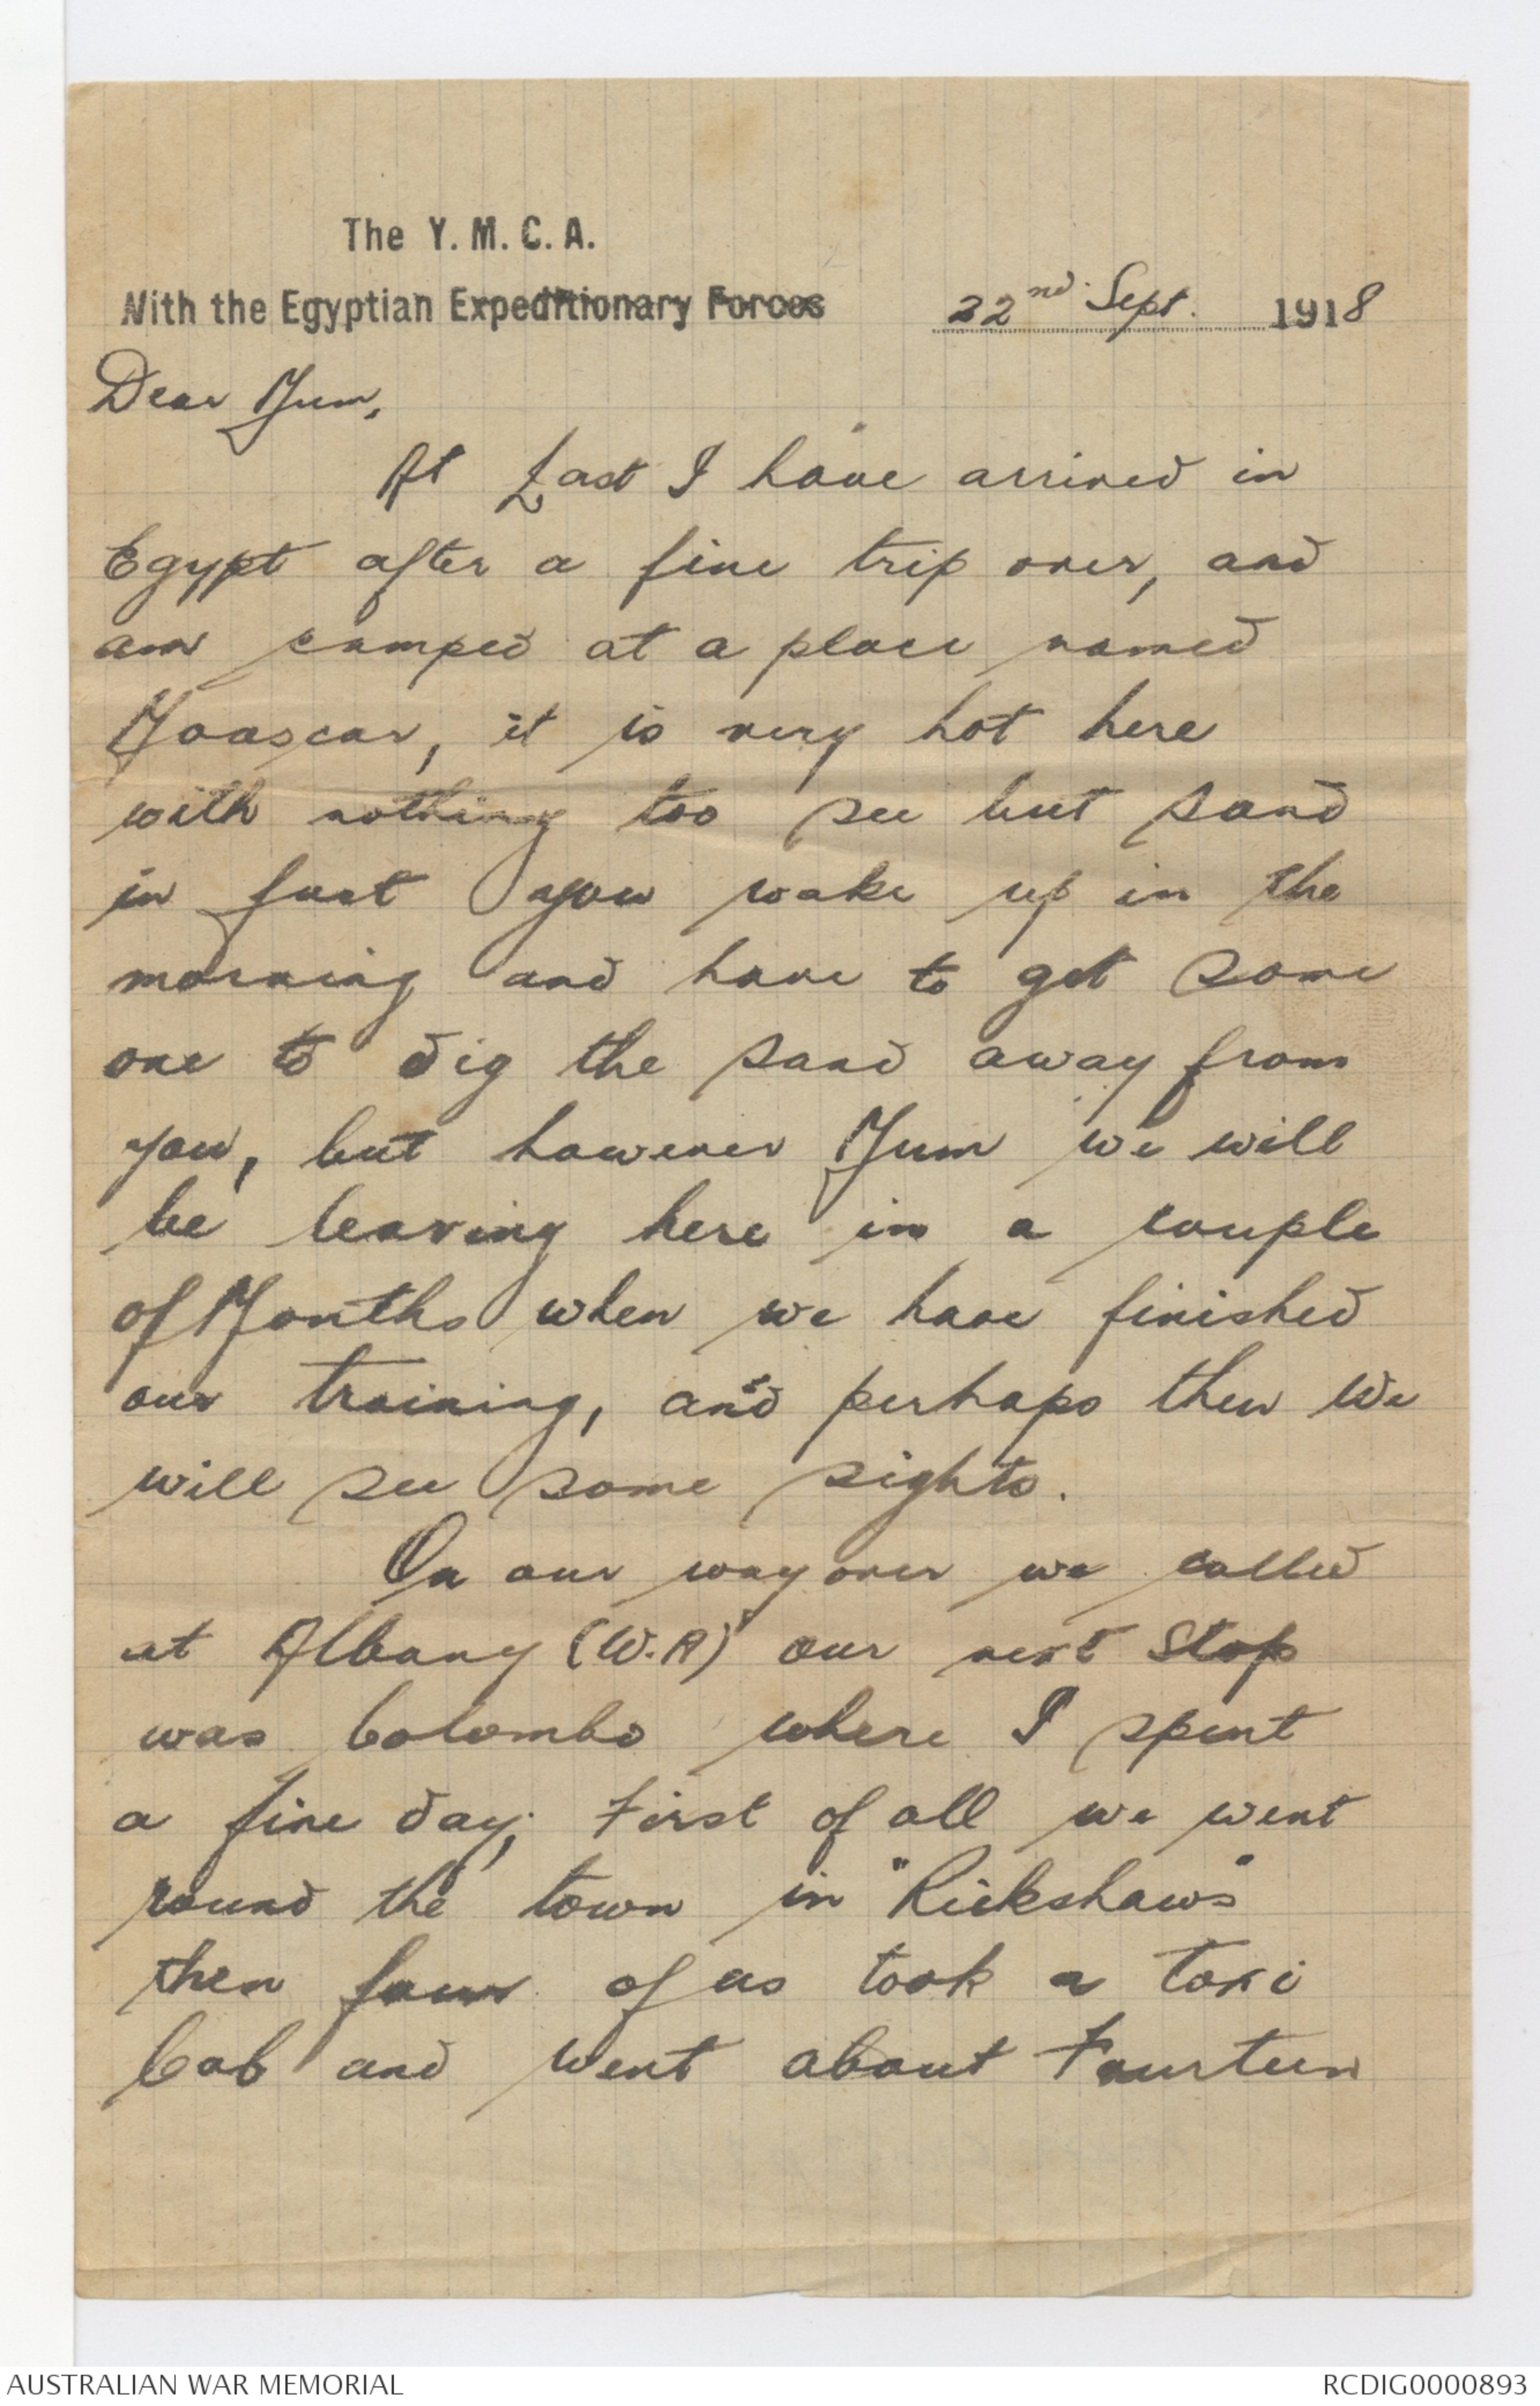 The Y. M. C. A.
With the Egyptian Expeditionary Forces
22nd Sept. 1918
Dear Mum,
At Last I have arrived in
Egypt after a fine trip over, and
am camped at a place named
Moascar, it is very hot here
with nothing too see but sand
in fact you wake up in the
morning and have to get some
one to dig the sand away from
you, but however Mum we will
be leaving here in a couple
of Months when we have finished
our training, and perhaps then we
will see some sights.
On our way over we called
at Albany (W.A) our next stop
was Colombo where I spent
a fine day; First of all we went
round the town in "Rickshaws"
then four of us took a taxi
Cab and went about Fourteen
AUSTRALIAN WAR MEMORIAL
RCDIG0000893